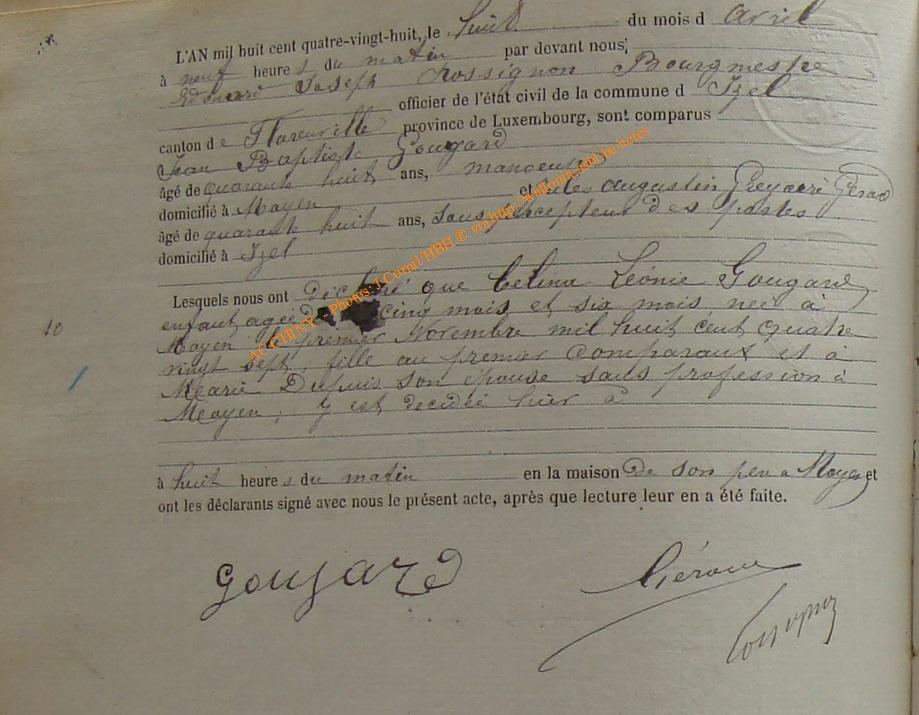 L'AN mil huit cent quatre-vingt-huit, le huit du mois d avril
à neuf heure s du matin par devant nous,
Edouard Joseph Rossignon Bourgmestre
officier de l'état civil de la commune d Izel
canton de Florenville province de Luxembourg, sont comparus
Jean Baptiste Gougard
âgé de quarante huit ans, manoeuvre
domicilié à Moyen et Jules augustin Gérard
âgé de quarante huit ans, sous percepteur des postes
domicilié à Izel
Lesquels nous ont déclaré que Célina Léonie Gougard
enfant agée de cinq mois et six mois née à
10
Moyen le premier Novembre mil huit cent quatre
vingt sept, fille au premier Comparaux et à
1
Marie Dupuis son épouse sans profession à
Moyen, y est décidée hier à
à huit heure s du matin en la maison de son peu a Moyen et
ont les déclarants signé avec nous le présent acte, après que lecture leur en a été faite.
Gougard
Gérard
Rossignon
ACCHINY - Photos: J.Cornil/HBH ©